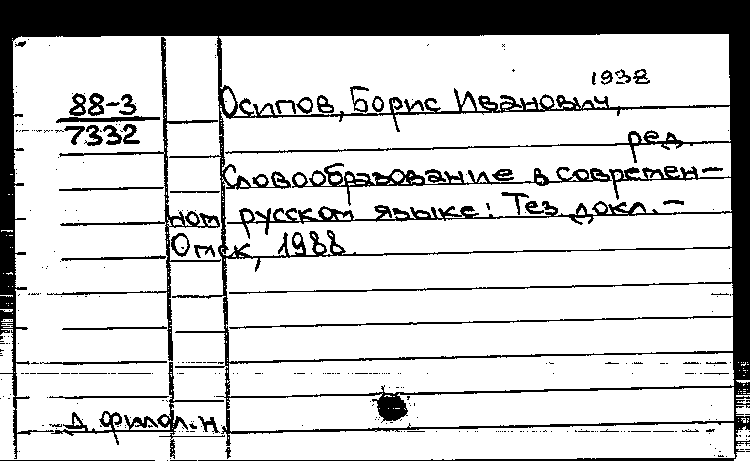 1938
88-3 Осипов, Борис Иванович,
7332
ред.
Словообразование в современ-
ном русском языке: Тез. докл. -
Омск, 1988.
Д. филол. н.